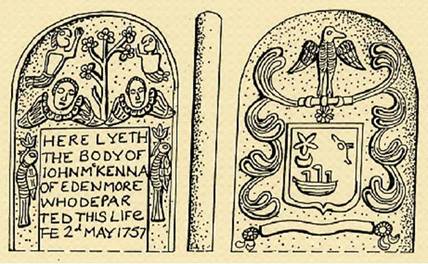 HERE LYETH
THE BODY OF
IOHN MᶜKENNA
OF EDENMORE
WHO DEPAR
TED THIS LIFE
FE 2ᵈ MAY 1757